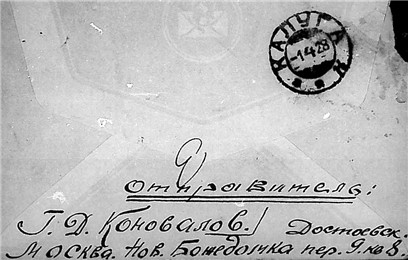 КАЛУГА
-1.4.28
К
отправитель:
Г. Д. Коновалов. Достоевск.
Москва. Нов. Божедомка пер. 9. кв 8.